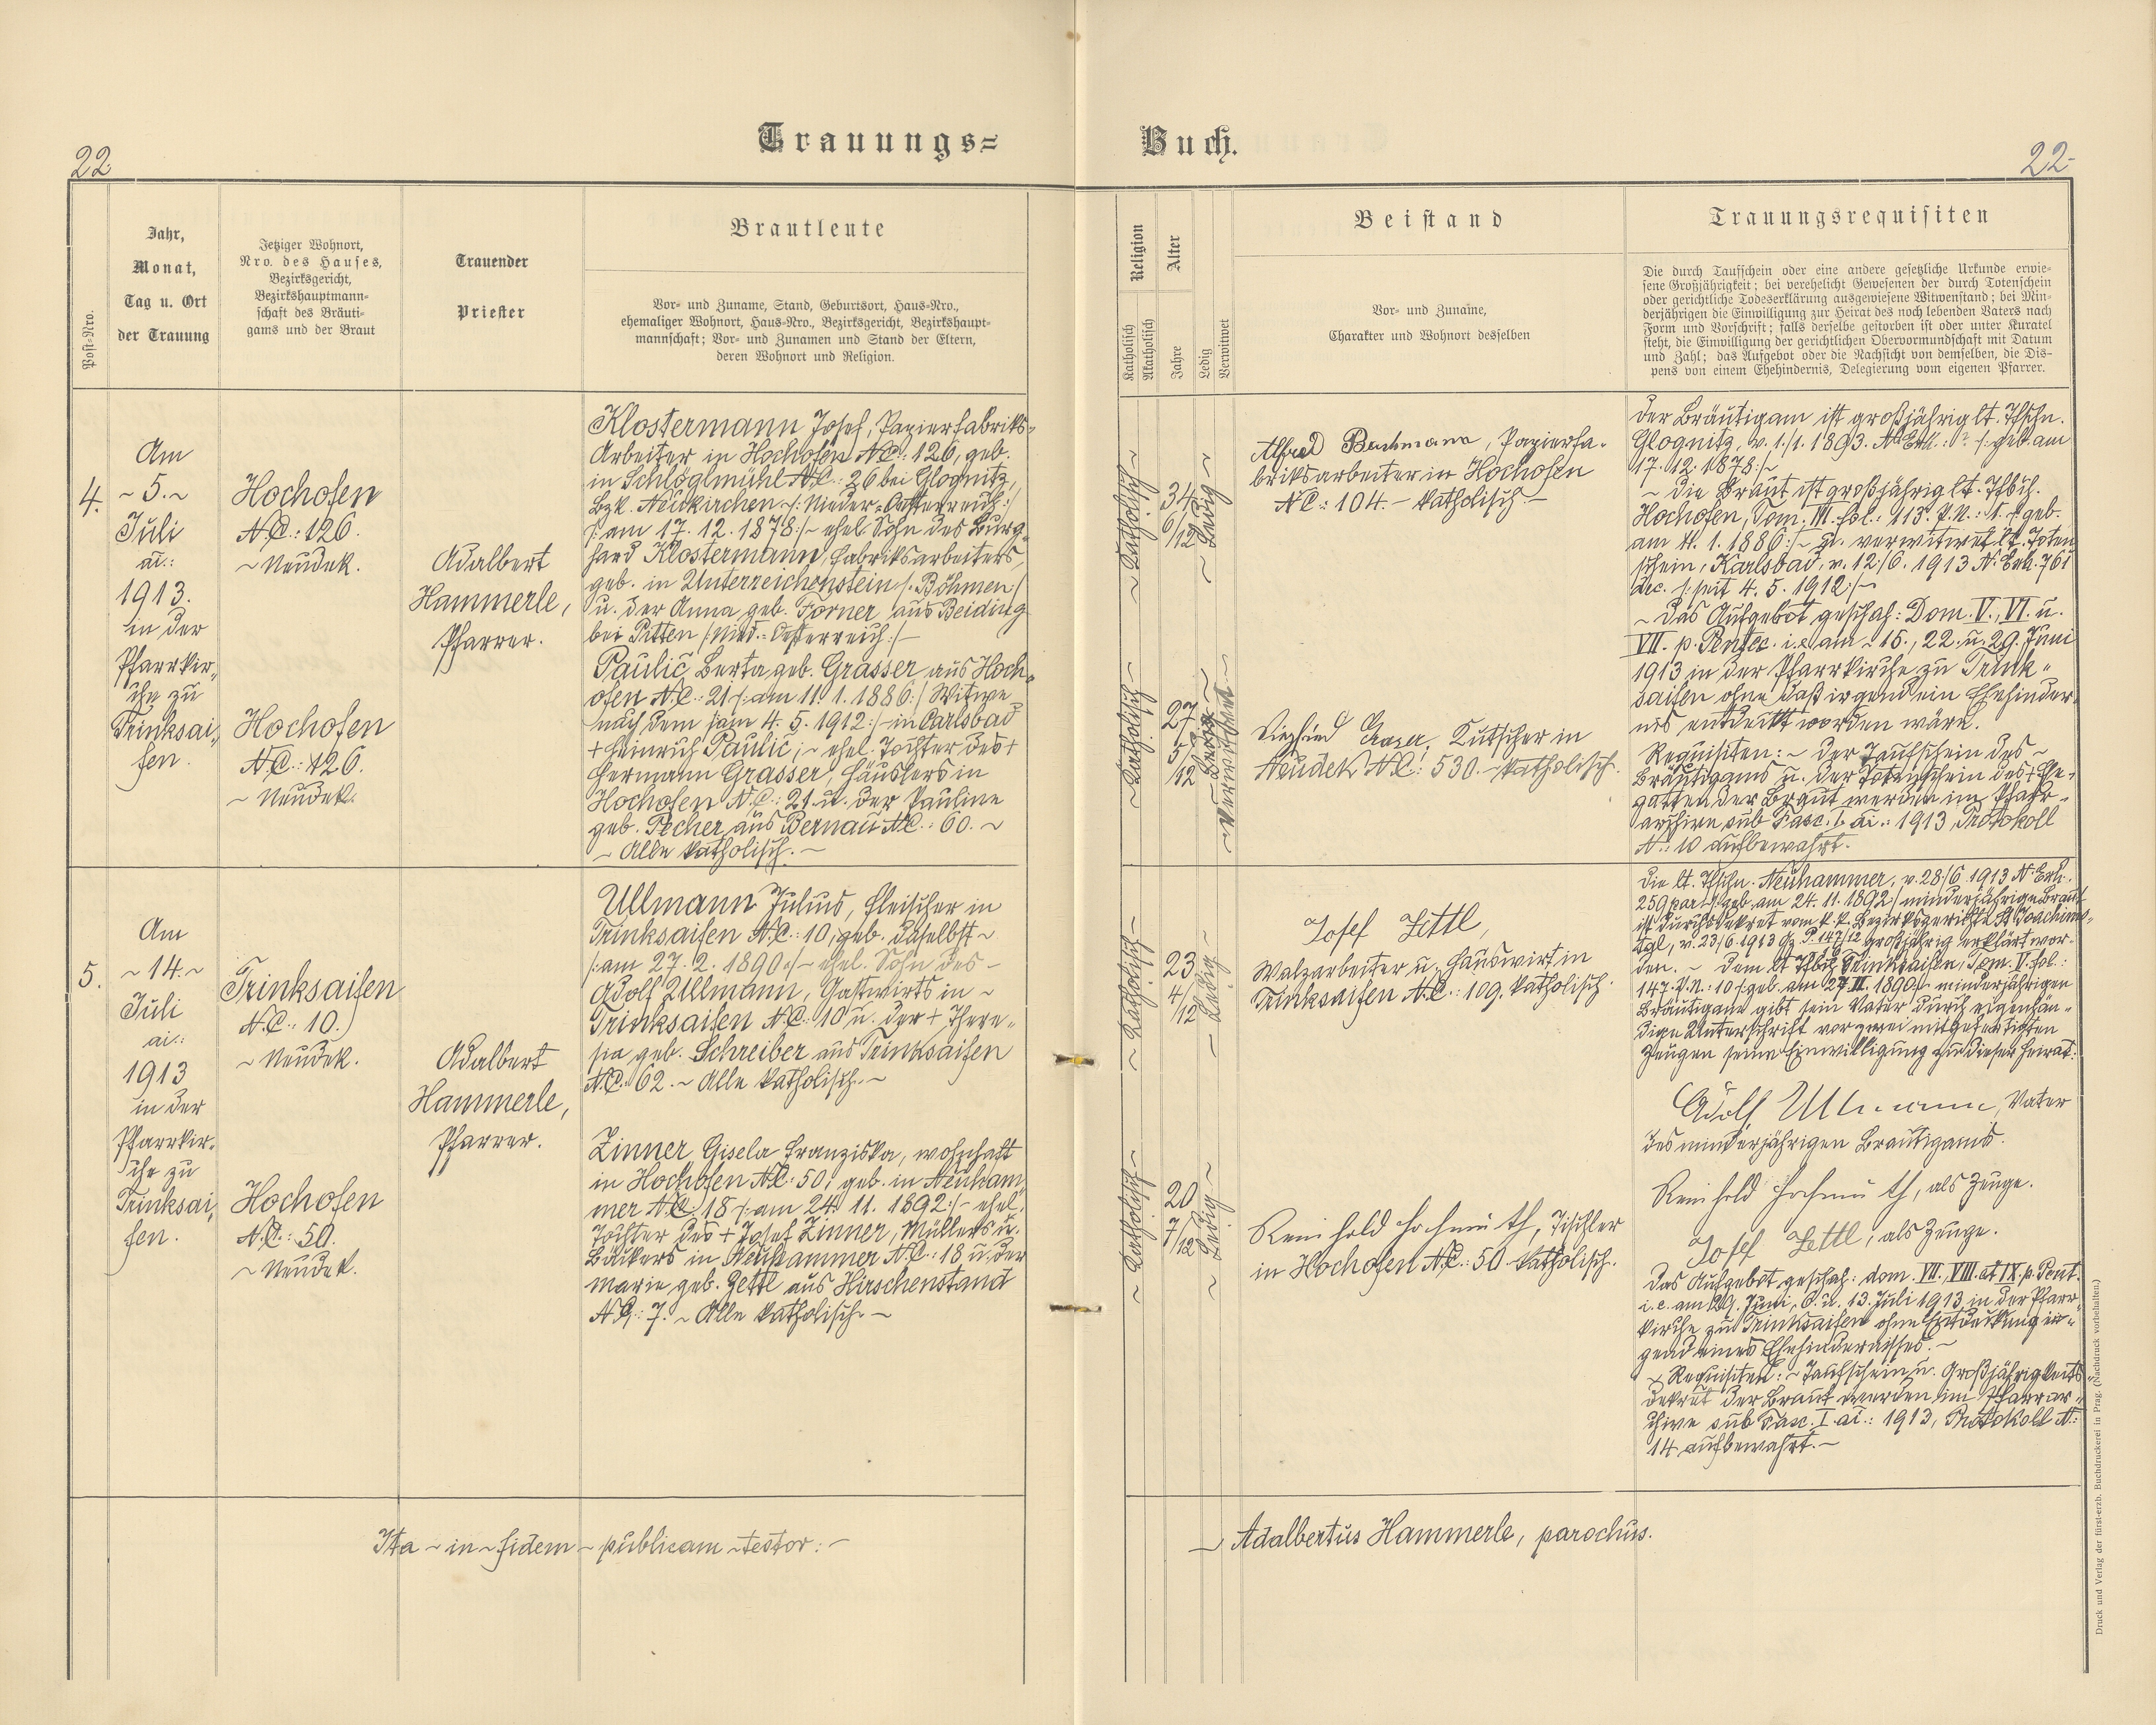 Trauungs=
Buch.
22
22
Post-Nro.
Jahr,
Monat,
Tag u. Ort
der Trauung
Jetziger Wohnort,
Nro. des Hauses,
Bezirksgericht,
Bezirkshauptmann=
schaft des Bräuti=
gams und der Braut
Trauender
Priester
Brautleute
Vor= und Zuname, Stand, Geburtsort, Haus=Nro.,
ehemaliger Wohnort, Haus=Nro., Bezirksgericht, Bezirkshaupt=
mannschaft; Vor= und Zunamen und Stand der Eltern,
deren Wohnort und Religion.
Religion
Katholisch
Akatholisch
Alter
Jahre
Ledig
Verwitwet
Beistand
Vor= und Zuname,
Charakter und Wohnort desselben
Trauungsrequisiten
Die durch Taufschein oder eine andere gesetzliche Urkunde erwie=
sene Großjährigkeit; bei verehelicht Gewesenen der durch Totenschein
oder gerichtliche Todeserklärung ausgewiesene Witwenstand; bei Min=
derjährigen die Einwilligung zur Heirat des noch lebenden Vaters nach
Form und Vorschrift; falls derselbe gestorben ist oder unter Kuratel
steht, die Einwilligung der gerichtlichen Obervormundschaft mit Datum
und Zahl; das Aufgebot oder die Nachsicht von demselben, die Dis=
pens von einem Ehehindernis, Delegierung vom eigenen Pfarrer.
4.
Am
~ 5. ~
Juli
ai.:
1913.
in der
Pfarrkir„
che zu
Trinksai„
fen.
Hochofen
N.C.: 126.
~ Neudek.
Hochofen
N.C.: 126.
~ Neudek.
Adalbert
Hammerle,
Pfarrer.
Klostermann Josef, Papierfabriks„
Arbeiter in Hochofen N.C.: 126, geb.
in Schlöglmühl N.C.: 26 bei Glognitz,
Bzk. Neukirchen /: Nieder=Oesterreich :/
/: am 17. 12. 1878 :/ ~ ehel. Sohn des Burg„
hard Klostermann, Fabriksarbeiters,
geb. in Unterreichenstein /: Böhmen :/
u. der Anna geb. Forner aus Beiding
bei Pitten /: Nied.=Oesterreich :/ ~
Paulič Berta geb. Grasser aus Hoch„
ofen N.C.: 21 /: am 11. 1. 1886 :/ Witwe
nach dem /: am 4. 5. 1912 :/ ~ in Carlsbad
+ Heinrich Paulič, ~ ehel. Tochter des +
Hermann Grasser, Häuslers in
Hochofen N.C.: 21 u. der Pauline
geb. Pecher aus Bernau N.C.: 60. ~
~ Alle katholisch. ~
~ Katholisch ~
34
6/12
~ Ledig ~
~ Katholisch ~
27
5/12
~ Verwitwet ~
Alfred Bachmann, Papierfa„
briksarbeiter in Hochofen
N.C.: 104. ~ katholisch. ~
Siegfried Grasser, Kutscher in
Neudek N.C.: 530. ~ katholisch.
Der Bräutigam ist großjährig lt. Tfschn.
Glognitz, v. 1./1. 1893. N. Exh.: ? /: geb. am
17. 12. 1878 :/ ~
~ Die Braut ist großjährig lt. Tfbch.
Hochofen, Tom. III. fol.: 113. P.N.: 1. /: geb.
am 11. 1. 1886 :/ ~ u. verwitwet lt. Toten
schein, Karlsbad, v. 12./6. 1913 N. Exh. 761
/: seit 4. 5. 1912 :/ ~
~ Das Aufgebot geschah: Dom. V., VI. u.
VII. p. Pentec. i. e. am ~ 15., 22. u. 29. Juni
1913 in der Pfarrkirche zu Trink„
saifen ohne daß irgend ein Ehehinder„
nis entdeckt worden wäre.
Requisiten: ~ Der Taufschein des ~
Bräutigams u. der Totenschein des + Ehe„
gatten der Braut werden im Pfarr„
archive sub Fasc. I. ai.: 1913, Protokoll
N.: 10 aufbewahrt.
5.
Am
~ 14. ~
Juli
ai.:
1913
in der
Pfarrkir„
che zu
Trinksai„
fen.
Trinksaifen
N.C.: 10.
~ Neudek.
Hochofen
N.C.: 50.
~ Neudek.
Adalbert
Hammerle,
Pfarrer.
Ullmann Julius, Fleischer in
Trinksaifen N.C.: 10, geb. daselbst ~
/: am 27. 2. 1890 :/ ~ ehel. Sohn des ~
Adolf Ullmann, Gastwirts in ~
Trinksaifen N.C.: 10 u. der + There„
sia geb. Schreiber aus Trinksaifen
N.C.: 62. ~ Alle katholisch. ~
Zinner Gisela Franziska, wohnhaft
in Hochofen N.C.: 50, geb. in Neuham„
mer N.C. 18 /: am 24. 11. 1892 :/ ~ ehel.
Tochter des + Josef Zinner, Müllers u.
Bäckers in Neuhammer N.C.: 18 u. der
Marie geb. Zettl aus Hirschenstand
N.C.: 7. ~ Alle katholisch. ~
~ Katholisch ~
23
4/12
~ Ledig ~
~ Katholisch ~
20
7/12
~ Ledig ~
Josef Zettl,
Walzarbeiter u. Hauswirt in
Trinksaifen N.C.: 109. katholisch.
Reinhold Hochmuth, Tischler
in Hochofen N.C.: 50 katholisch.
Die lt. Tfschn. Neuhammer, v. 28./6. 1913 N. Exh.
259 par /: geb. am 24. 11. 1892 :/ minderjährige Braut
ist durch Dekret vom k. k. Bezirksgerichte St. Joachims„
tgl, v. 23./6. 1913 Gz. P. 147/12 großjährig erklärt wor„
den. ~ Dem lt. Tfbch. Trinksaifen, Tom. V. fol.:
147. P.N.: 10 /: geb. am 27. II. 1890 :/ minderjährigen
Bräutigam gibt sein Vater durch eigenhän„
dige Unterschrift vor zwei mitgefertigten
Zeugen seine Einwilligung zu dieser Heirat.
Adolf Ullmann, Vater
des minderjährigen Bräutigams.
Reinhold Hochmuth, als Zeuge.
Josef Zettl, als Zeuge.
Das Aufgebot geschah: dom. VII., VIII. et IX. p. Pent.
i. e. am 29. Juni, 6. u. 13. Juli 1913 in der Pfarr„
kirche zu Trinksaifen ohne Entdeckung ir„
gend eines Ehehindernisses. ~
~ Requisiten: ~ Taufschein u. Großjährigkeits
dekret der Braut werden im Pfarrar„
chive sub Fasc. I. ai.: 1913, Protokoll N.:
14 aufbewahrt. ~
Ita ~ in ~ fidem ~ publicam ~ testor: ~
~ Adalbertus Hammerle, parochus.
Druck und Verlag der fürst-erzb. Buchdruckerei in Prag. (Nachdruck vorbehalten.)